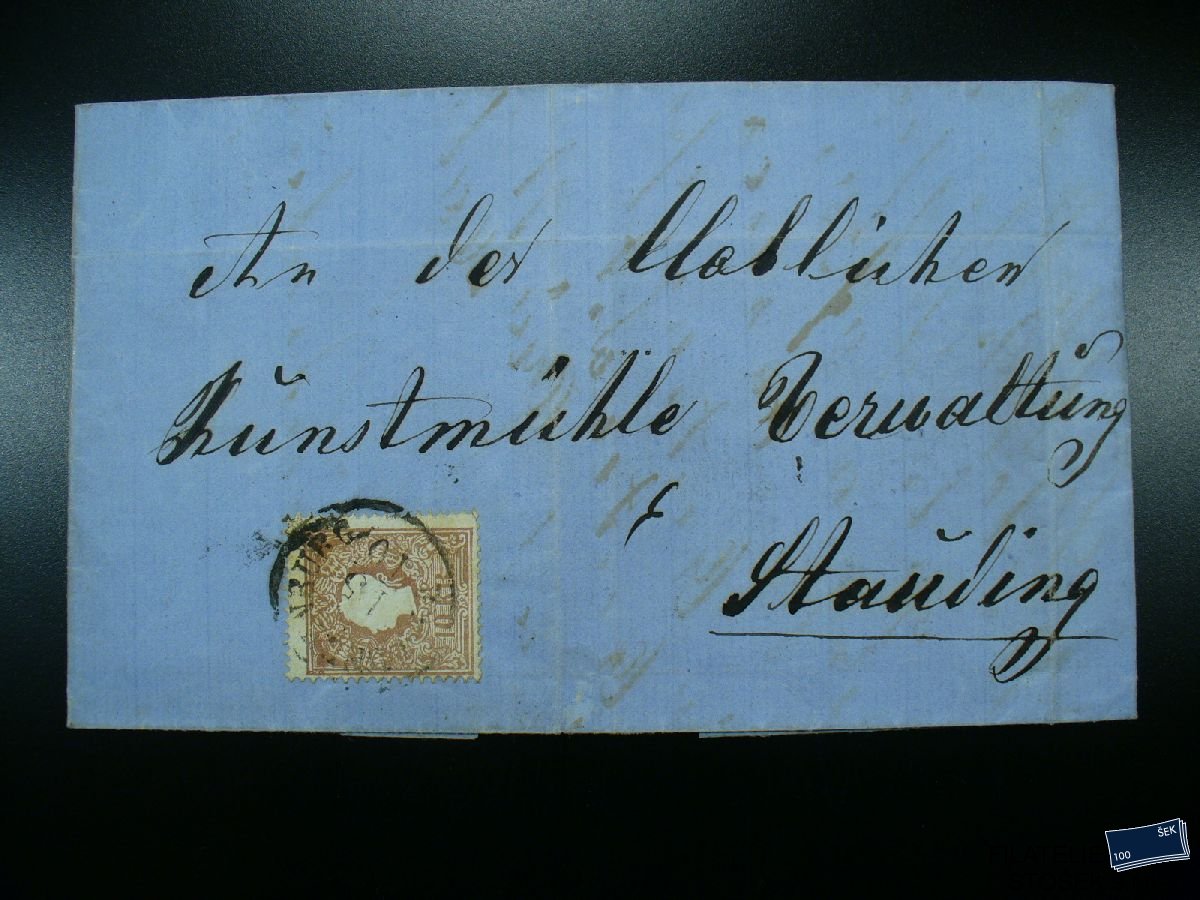 An der Löblichen
Kunstmühle Verwaltung
Stauding
10 KREUZ
ŠEK
100